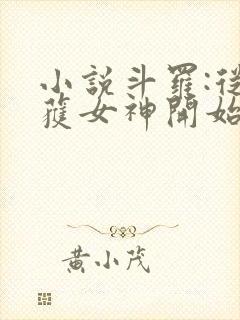 小說斗羅:從
獲女神開始
黃小茂